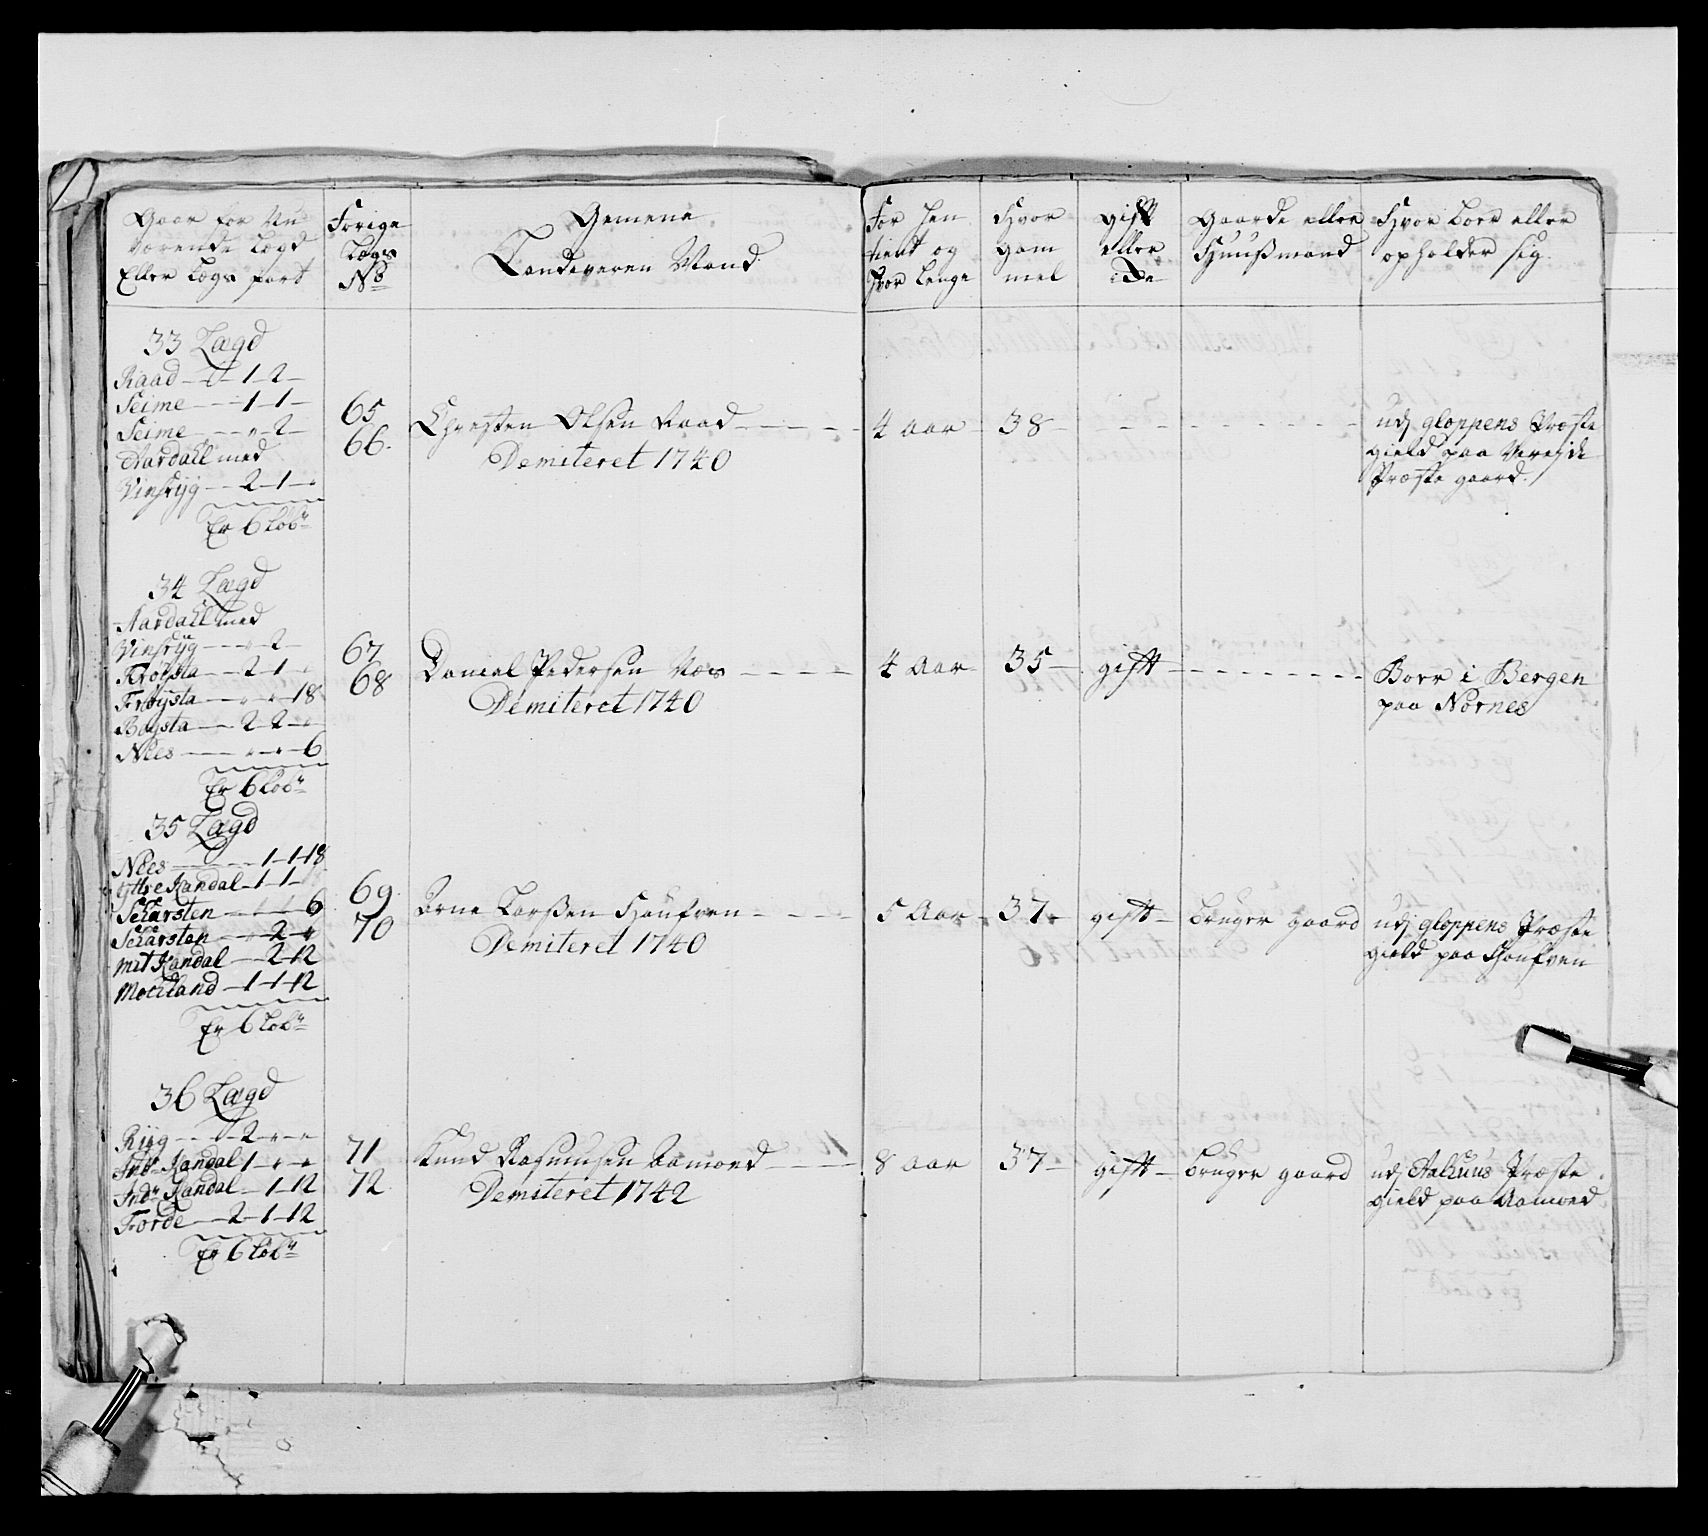 Gaar for Nu
Værende Lægd
Eller Lægs part
Forige
Lægs
No
Gemene
Landeværn Mand
For hen
tient og
hvor lenge
Hvor
Gam
mel
gift
eller
Ej
Gaarde eller
Huusmand
Hvor boer eller
opholder sig
33 Lægd
Raad - - 1-2-
Seime - - 1-1-
Seime - - - 2-
Aardall med
Vinsrÿg - 2-1-
Er 6 løb
65
66
Christen Olsen Raad
Demiteret 1740
4 aar
38
udj gloppens Præste
gield paa Vereide
Præste gaard.
34 Lægd
Aardall med
Vinsrÿg - - 2-
Frøÿsta - 2-1-
Frøÿsta - - - 18
Bøÿsta - 2-2-
Nees - - - 6
Er 6 løb
67
68
Daniel Pedersen Næs
Demiteret 1740
4 Aar
35
gift
Boer i Bergen
paa Nornes
35 Lægd
Nees - - 1-1-18
ÿttre Kandal - 1-1-
Skarsten - - - 6
Skarsten - - 2-
mit Kandal - 2-12
Moeland - 1-1-12
Er 6 løb
69
70
Arne Larssen Haufven
Demiteret 1740
5 Aar
37
gift
bruger gaard
udj gloppens Præste
gield paa Haufven
36 Lægd
Rÿg - - 2 - -
Indr Kandal 1 - -
Indr Kandal - 1-12
Førde - 2-1-12
Er 6 løb
71
72
Knud Rasmusen Aamoed
Demiteret 1742
8 aar
37
gift
bruger gaard
udj Aalhuus Præste
gield paa Aamoed